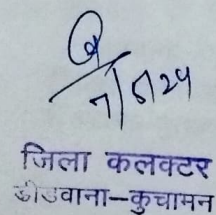 7/6/24
जिला कलक्टर
डीडवाना-कुचामन